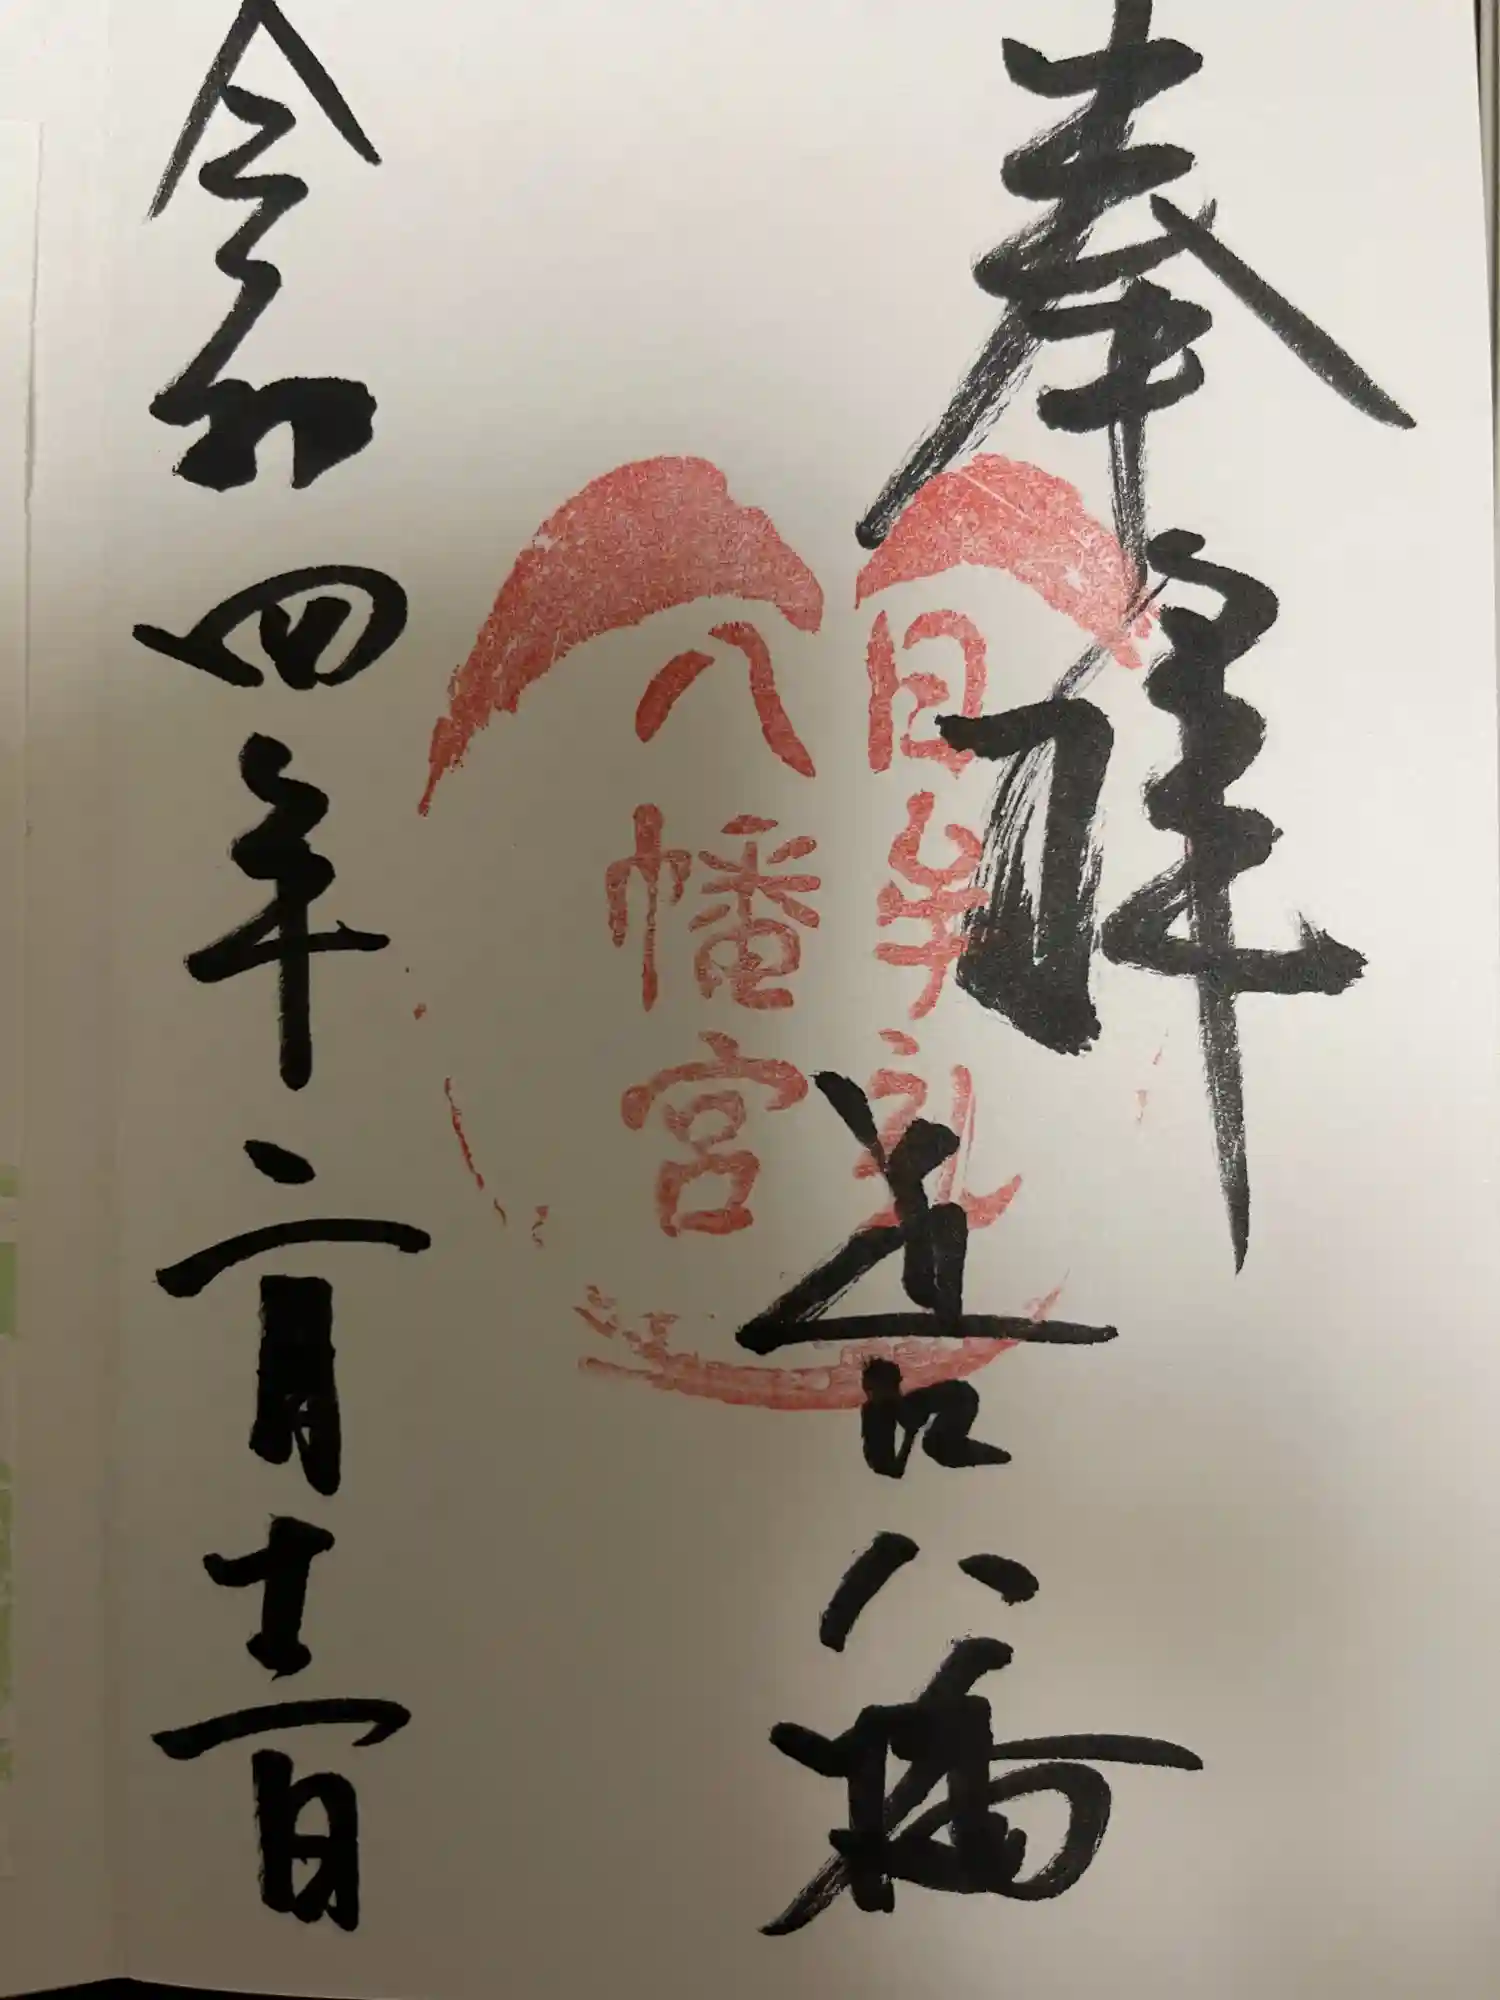 奉拝
日牟礼
八幡宮
近江八幡
令和四年二月十二日